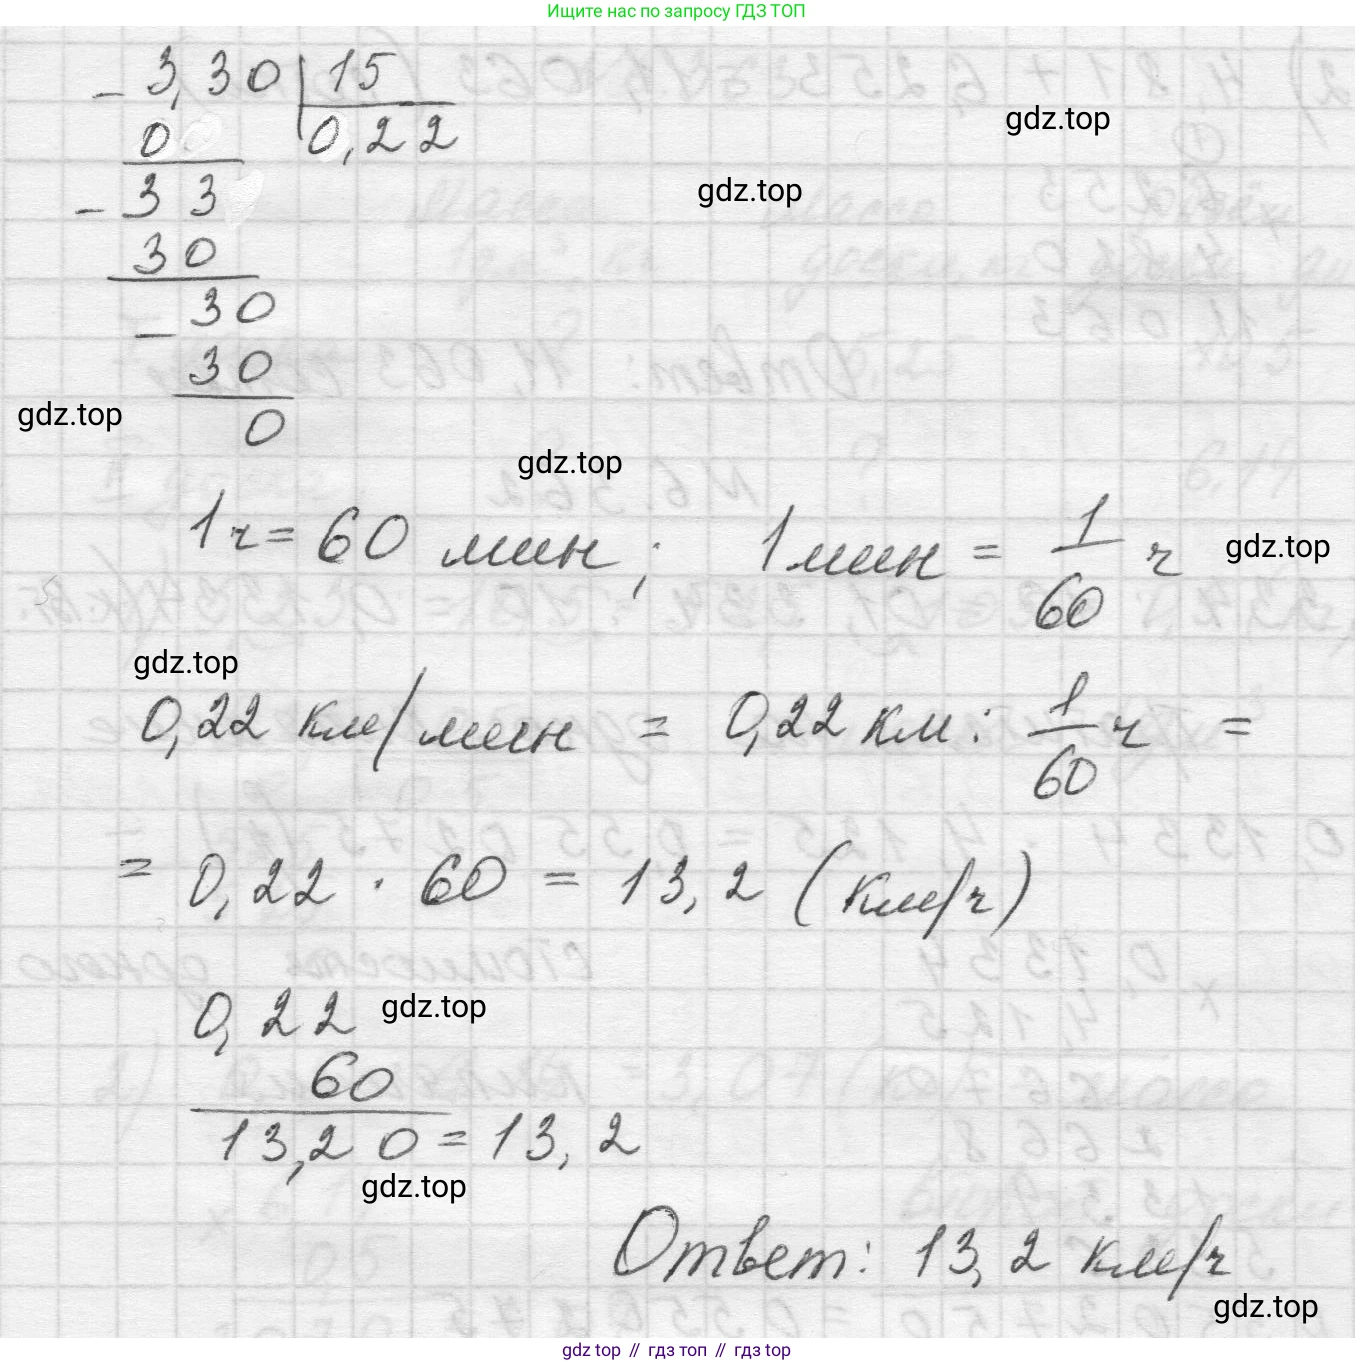 Ищите нас по запросу ГДЗ ТОП
3,30 | 15
0 0,22
gdz.top
- 33
gdz.top
30
- 30
30
gdz.top
0
gdz.top
1 ч = 60 мин; 1 мин = 1/60 ч
gdz.top
gdz.top
0,22 км/мин = 0,22 км : 1/60 ч =
= 0,22 · 60 = 13,2 (км/ч)
0,22
gdz.top
60
13,20 = 13,2
gdz.top
Ответ: 13,2 км/ч
gdz.top
gdz top // гдз топ // gdz top